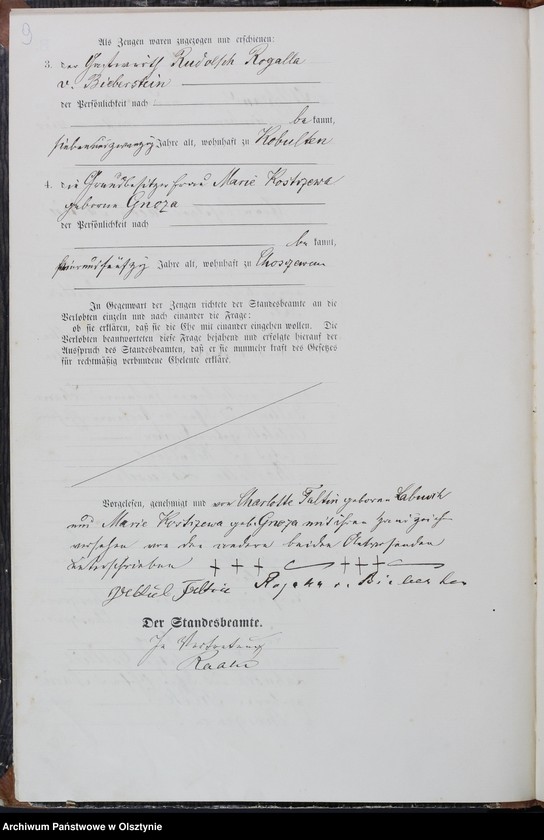 9
Als Zeugen waren zugezogen und erschienen:
3. der Gastwirth Rudolph Rogalla
v. Bieberstein
der Persönlichkeit nach
be kannt,
siebenundzwanzig Jahre alt, wohnhaft zu Kobulten
4. die Grundbesitzerfrau Marie Kostrzewa
geborne Gnoza
der Persönlichkeit nach
be kannt,
Jahre alt, wohnhaft zu Choszewen
In Gegenwart der Zeugen richtete der Standesbeamte an die
Verlobten einzeln und nach einander die Frage:
ob sie erklären, daß sie die Ehe mit einander eingehen wollen. Die
Verlobten beantworteten diese Frage bejahend und erfolgte hierauf der
Ausspruch des Standesbeamten, daß er sie nunmehr kraft des Gesetzes
für rechtmäßig verbundene Eheleute erkläre.
Vorgelesen, genehmigt und von Charlotte Faltin geborne Labusch
und Marie Kostrzewa geb. Gnoza mit ihren Handzeich
versehen von den andern beiden
unterschrieben + + + + + +
Rogalla v. Bieberstein
Der Standesbeamte.
In Vertretung
Archiwum Państwowe w Olsztynie